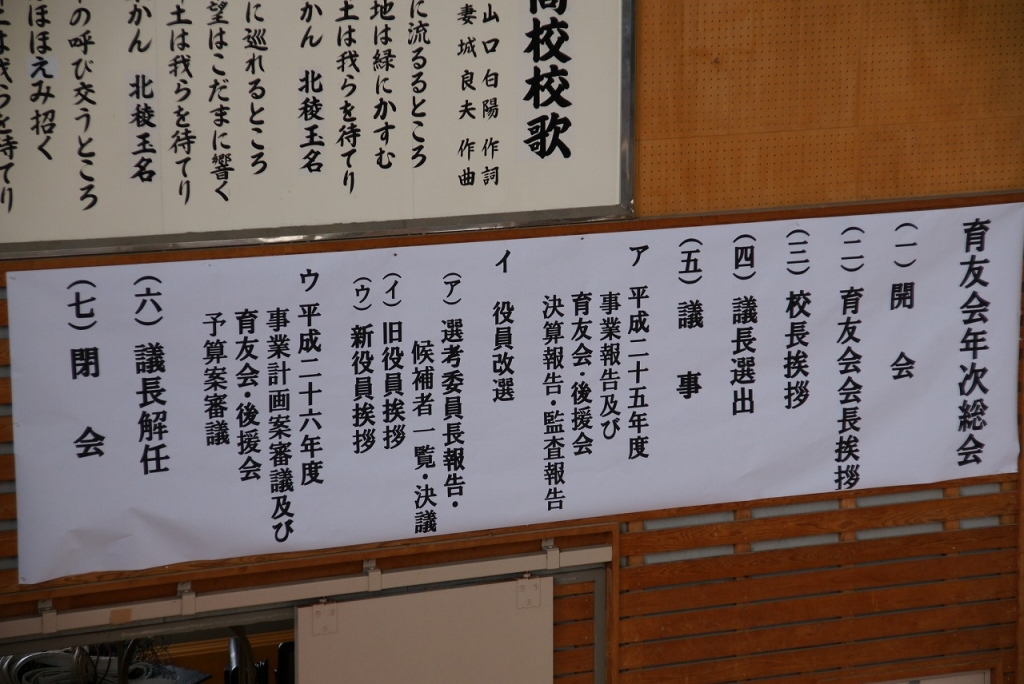 高校校歌
山口白陽 作詞
妻城良夫 作曲
に流るるところ
地は緑にかすむ
土は我らを待てり
かん 北稜玉名
に巡れるところ
望はこだまに響く
土は我らを待てり
かん 北稜玉名
の呼び交うところ
ほほえみ招く
土は我らを待てり
育友会年次総会
(一) 開会
(二) 育友会会長挨拶
(三) 校長挨拶
(四) 議長選出
(五) 議事
ア 平成二十五年度
事業報告及び
育友会・後援会
決算報告・監査報告
イ 役員改選
(ア) 選考委員長報告・
候補者一覧・決議
(イ) 旧役員挨拶
(ウ) 新役員挨拶
ウ 平成二十六年度
事業計画案審議及び
育友会・後援会
予算案審議
(六) 議長解任
(七) 閉会